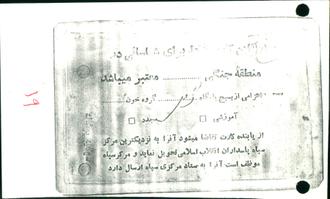 برای شناسائی در
منطقه جنگی .......... معتبر میباشد
اعزامی از بسیج پایگاه گروه خون
آموزشی □ مجدد □
از یابنده کارت تقاضا میشود آنرا به نزدیکترین مرکز
سپاه پاسداران انقلاب اسلامی تحویل نماید و مرکز سپاه
موظف است آنرا به ستاد مرکزی سپاه ارسال دارد
۱۹